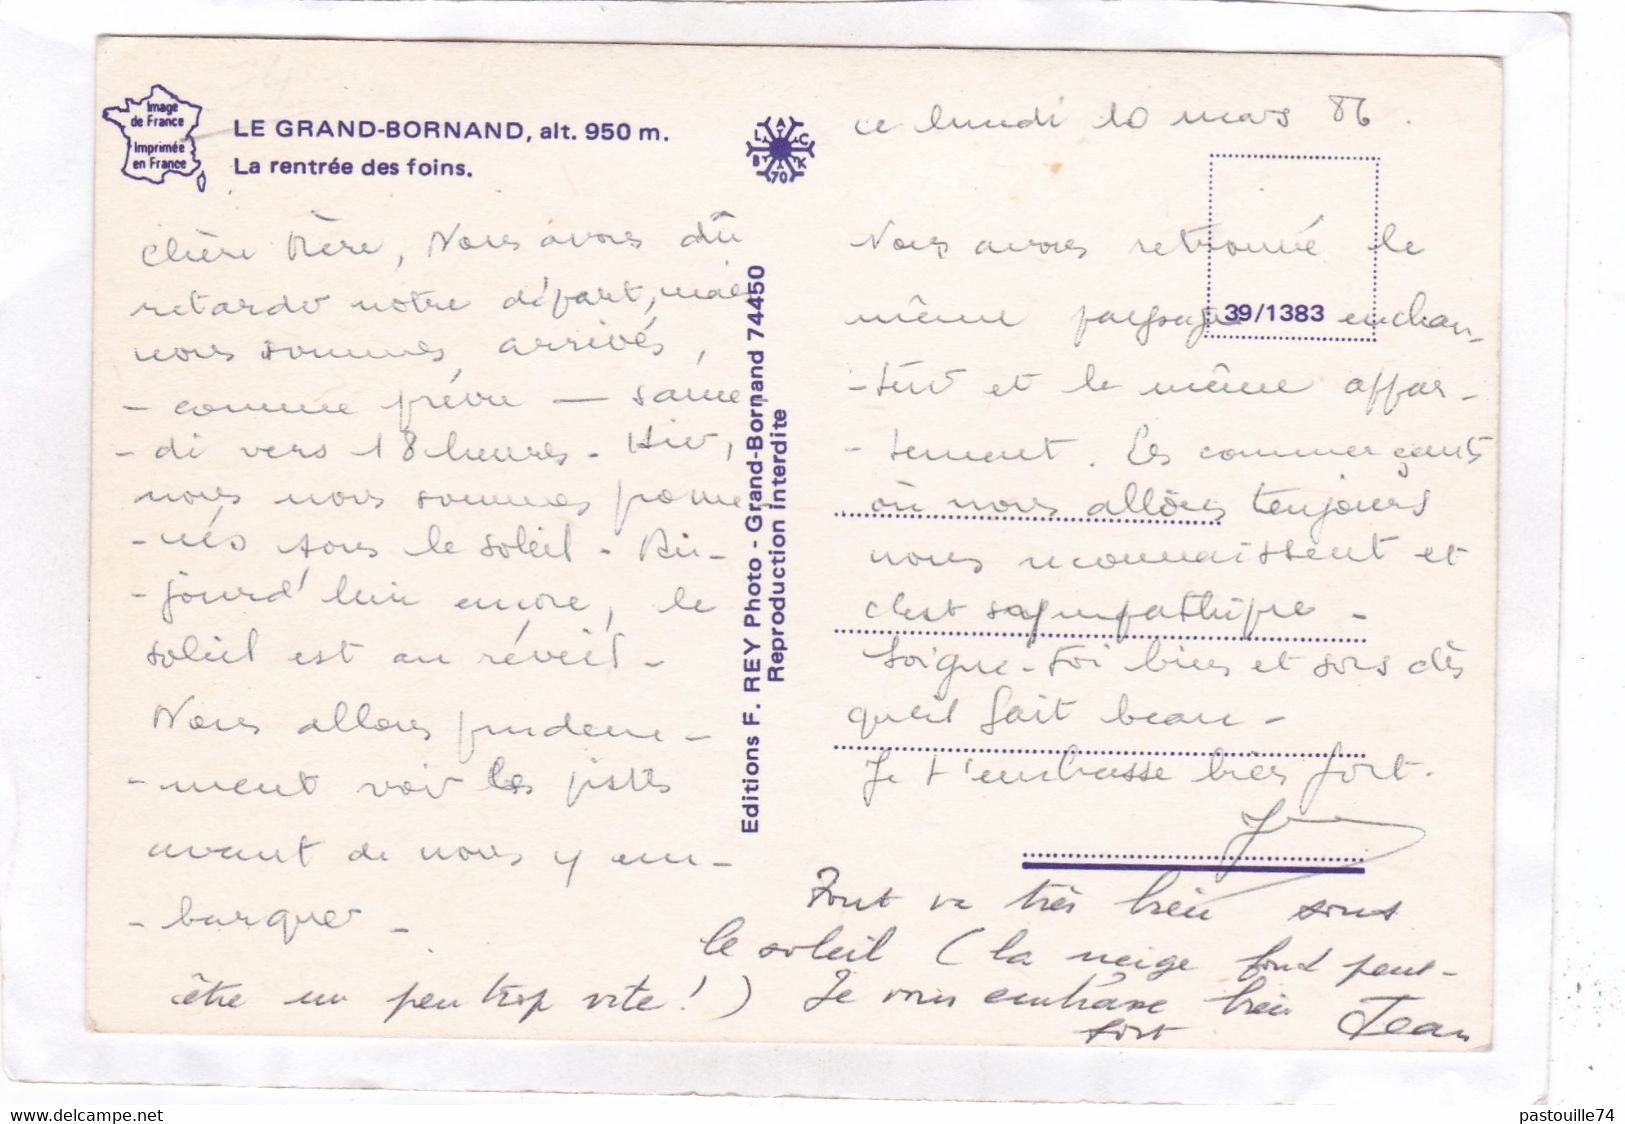 Image
de France
Imprimée
en France
LE GRAND-BORNAND, alt. 950 m.
La rentrée des foins.
BLACK
70
Chère Mère, Nous avons dû
retarder notre départ, mais
nous sommes arrivés,
- comme prévu — same
- di vers 18 heures - Hier,
nous nous sommes prome
- nés sous le soleil - Au-
- jourd'hui encore, le
soleil est au réveil -
Nous allons prudem -
- ment voir les pistes
avant de nous y em -
- barquer -
Editions F. REY Photo - Grand-Bornand 74450
Reproduction interdite
ce lundi 10 mars 86.
39/1383
Nous avons retrouvé le
même paysage enchan-
- teur et le même appar -
- tement. Les commerçants
où nous allons toujours
nous reconnaissent et
c'est sympathique -
Soigne-toi bien et sors dès
qu'il fait beau -
Je t'embrasse bien fort.
Tout va très bien sous
le soleil (la neige fond peut-
être un peu trop vite!) Je vous embrasse bien
fort Jean
delcampe.net
pastouille74